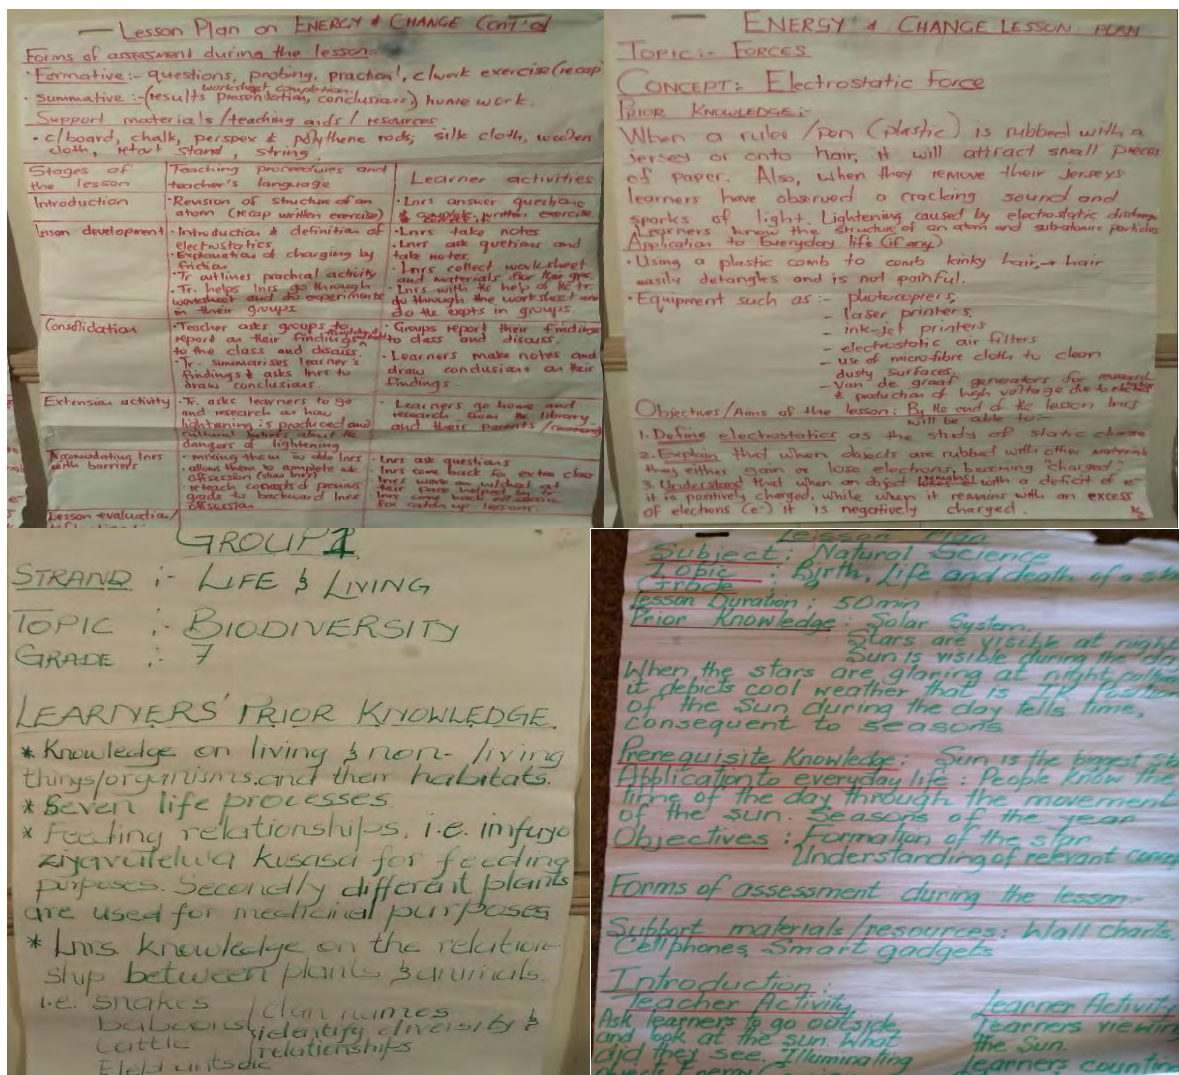 Lesson Plan on ENERGY & CHANGE Cont'd
Forms of assessment during the lesson:
· Formative :- questions, probing, practical, c/work exercise (recap)
worksheet completion
· Summative :- (results presentation, conclusions) home work.
Support materials/teaching aids/resources
· c/board, chalk, perspex & polythene rods, silk cloth, woolen
cloth, retort stand, string.
Stages of
the lesson
Teaching procedures and
teacher's language
Learner activities
Introduction
· Revision of structure of an
atom (recap written exercise)
· Lnrs answer questions
written exercise
Lesson development
· Introduction & definition of
electrostatics
· Explanation of charging by
friction
· Tr outlines practical activity
· Tr. helps lnrs go through
worksheet and do experiments
in their groups
· Lnrs take notes
· Lnrs ask quetions and
take notes.
· Lnrs collect worksheet
and materials for their gps.
· Lnrs with the help of the tr.
go through the worksheet and
do the expts in groups.
Consolidation
· Teacher asks groups to
report on their findings
to the class and discuss.
· Tr. summarises learner's
findings & asks lnrs to
draw conclusions.
· Groups report their findings
to class and discuss.
· Learners make notes and
draw conclusions on their
findings
Extension activity
· Tr. asks learners to go
and research on how
lightening is produced and
cultural beliefs about the
dangers of lightening
· Learners go home and
research from the library
and their parents /
Accomodating lnrs
with barriers
· mixing them w able lnrs
· allows them to complete wk
· reteach concepts of previous
grade to backward lnrs
· Lnrs ask questions
lnrs come back for extra class
their pace helped by Tr.
lnrs come back
for catch up lessons.
Lesson evaluation/
ENERGY & CHANGE LESSON PLAN
TOPIC :- FORCES
CONCEPT: Electrostatic force
PRIOR KNOWLEDGE :-
When a ruler /pen (plastic) is rubbed with a
jersey or onto hair, it will attract small pieces
of paper. Also, when they remove their jerseys
learners have observed a cracking sound and
sparks of light. Lightening caused by electrostatic discharge
Learners know the structure of an atom and sub-atomic particles
Application to Everyday life (if any)
· Using a plastic comb to comb kinky hair, → hair
easily detangles and is not painful.
· Equipment such as :- photocopiers,
- laser printers,
- ink-jet printers
- electrostatic air filters
- use of micro-fibre cloth to clean
dusty surfaces.
- Van de graaf generators for research
& production of high voltage
Objectives/Aims of the lesson: By the end of the lesson lnrs
will be able to:-
1. Define electrostatics as the study of static charge
2. Explain that when objects are rubbed with other materials
they either gain or lose electrons, becoming "charged"
3. Understand that when an object remains with a deficit of e-
it is positively charged, while when it remains with an excess
of electrons (e-) it is negatively charged.
GROUP 1
STRAND :- LIFE & LIVING
TOPIC :- BIODIVERSITY
GRADE :- 7
LEARNERS' PRIOR KNOWLEDGE.
* Knowledge on living & non-living
things/organisms.and their habitats.
* Seven life processes
* Feeding relationships, i.e. imfuyo
ziyavulelwa kusasa for feeding
purposes. Secondly different plants
are used for medicinal purposes
* Lnrs knowledge on the relation-
ship between plants & animals.
i.e. snakes / clan names
baboons / identify diversity &
cattle / relationships
Lesson Plan
Subject : Natural Science
Topic : Birth, life and death of a sta
Grade : 9
Lesson Duration : 50min
Prior Knowledge : Solar System.
Stars are visible at night
Sun is visible during the da
When the stars are glaring at night
it depicts cool weather that is Position
of the Sun during the day tells time,
consequent to seasons
Prerequisite Knowledge: Sun is the biggest st
Application to everyday life : People know the
time of the day through the movement
of the sun. Seasons of the year
Objectives : Formation of the star
Understanding of relevant conce
Forms of assessment during the lesson-
Support materials/resources : Wall charts,
Cellphones, Smart gadgets
Introduction :
Teacher Activity
Learner Activity
Ask learners to go outside
and look at the sun. What
did they see. Illuminating
Learners viewing
the Sun.
Learners countin